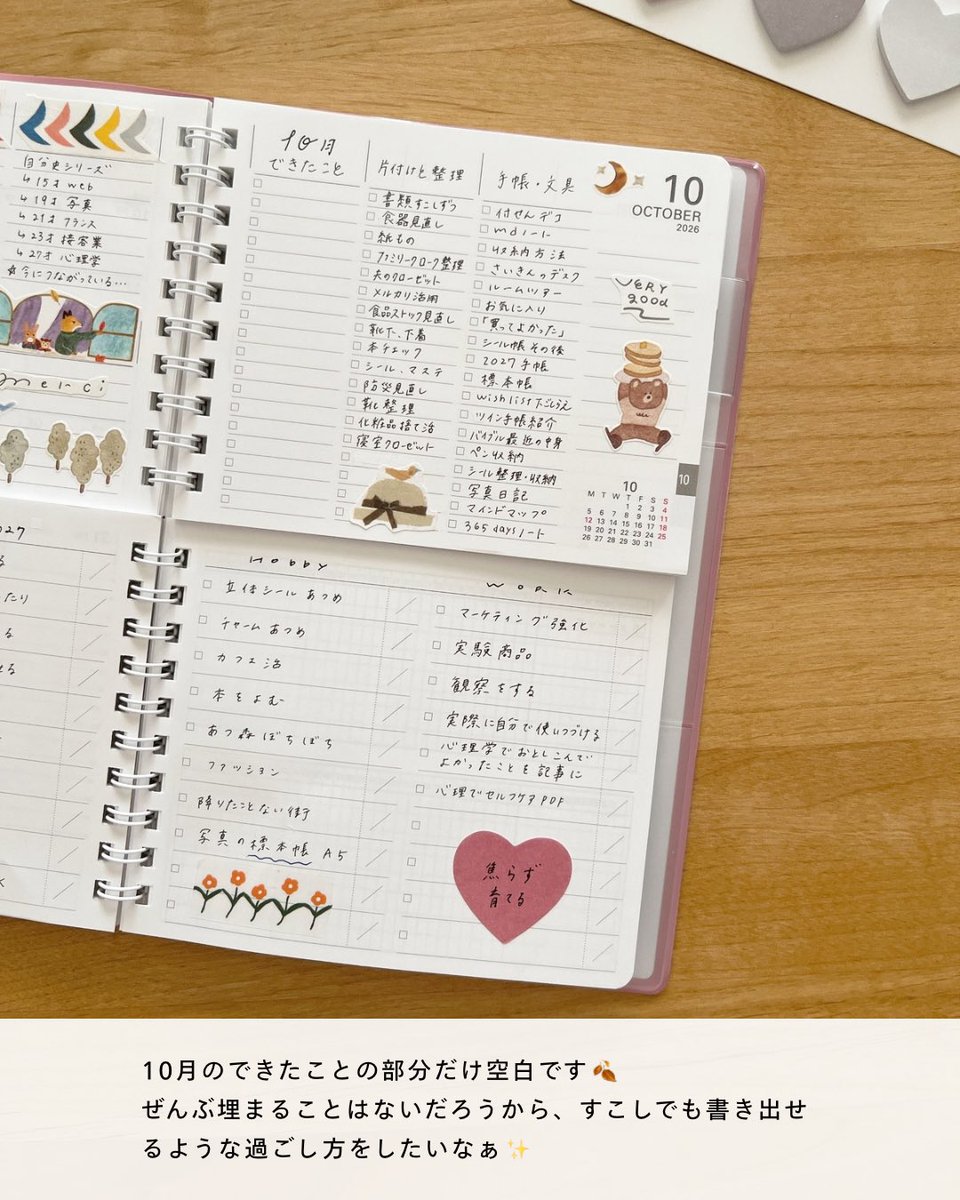 自分史シリーズ
↳15才 web
↳19才 写真
↳21才 フランス
↳23才 接客業
↳27才 心理学
☆今につながっている…
merci
10月
できたこと
片付けと整理
書類すこしずつ
食器見直し
紙もの
ファミリークローク整理
夫のクローゼット
メルカリ活用
食品ストック見直し
靴下、下着
本チェック
シール、マステ
防災見直し
靴整理
化粧品捨て活
寝室クローゼット
手帳・文具
付せんデコ
mdノート
収納方法
さいきんのデスク
ルームツアー
お気に入り
「買ってよかった」
シール帳その後
2027手帳
標本帳
wishlist下ごしらえ
ツイン手帳紹介
バイブル最近の中身
ペン収納
シール整理・収納
写真日記
マインドマップ
365daysノート
10
OCTOBER
2026
VERY
good
10
10
M T W T F S S
1 2 3 4
5 6 7 8 9 10 11
12 13 14 15 16 17 18
19 20 21 22 23 24 25
26 27 28 29 30 31
HOBBY
立体シールあつめ
チャームあつめ
カフェ活
本をよむ
あつ森ぼちぼち
ファッション
降りたことない街
写真の標本帳 A5
WORK
マーケティング強化
実験商品
観察をする
実際に自分で使いつづける
心理学でおとしこんで
よかったことを記事に
心理でセルフケアPDF
焦らず
育てる
10月のできたことの部分だけ空白です🍂
ぜんぶ埋まることはないだろうから、すこしでも書き出せ
るような過ごし方をしたいなぁ✨